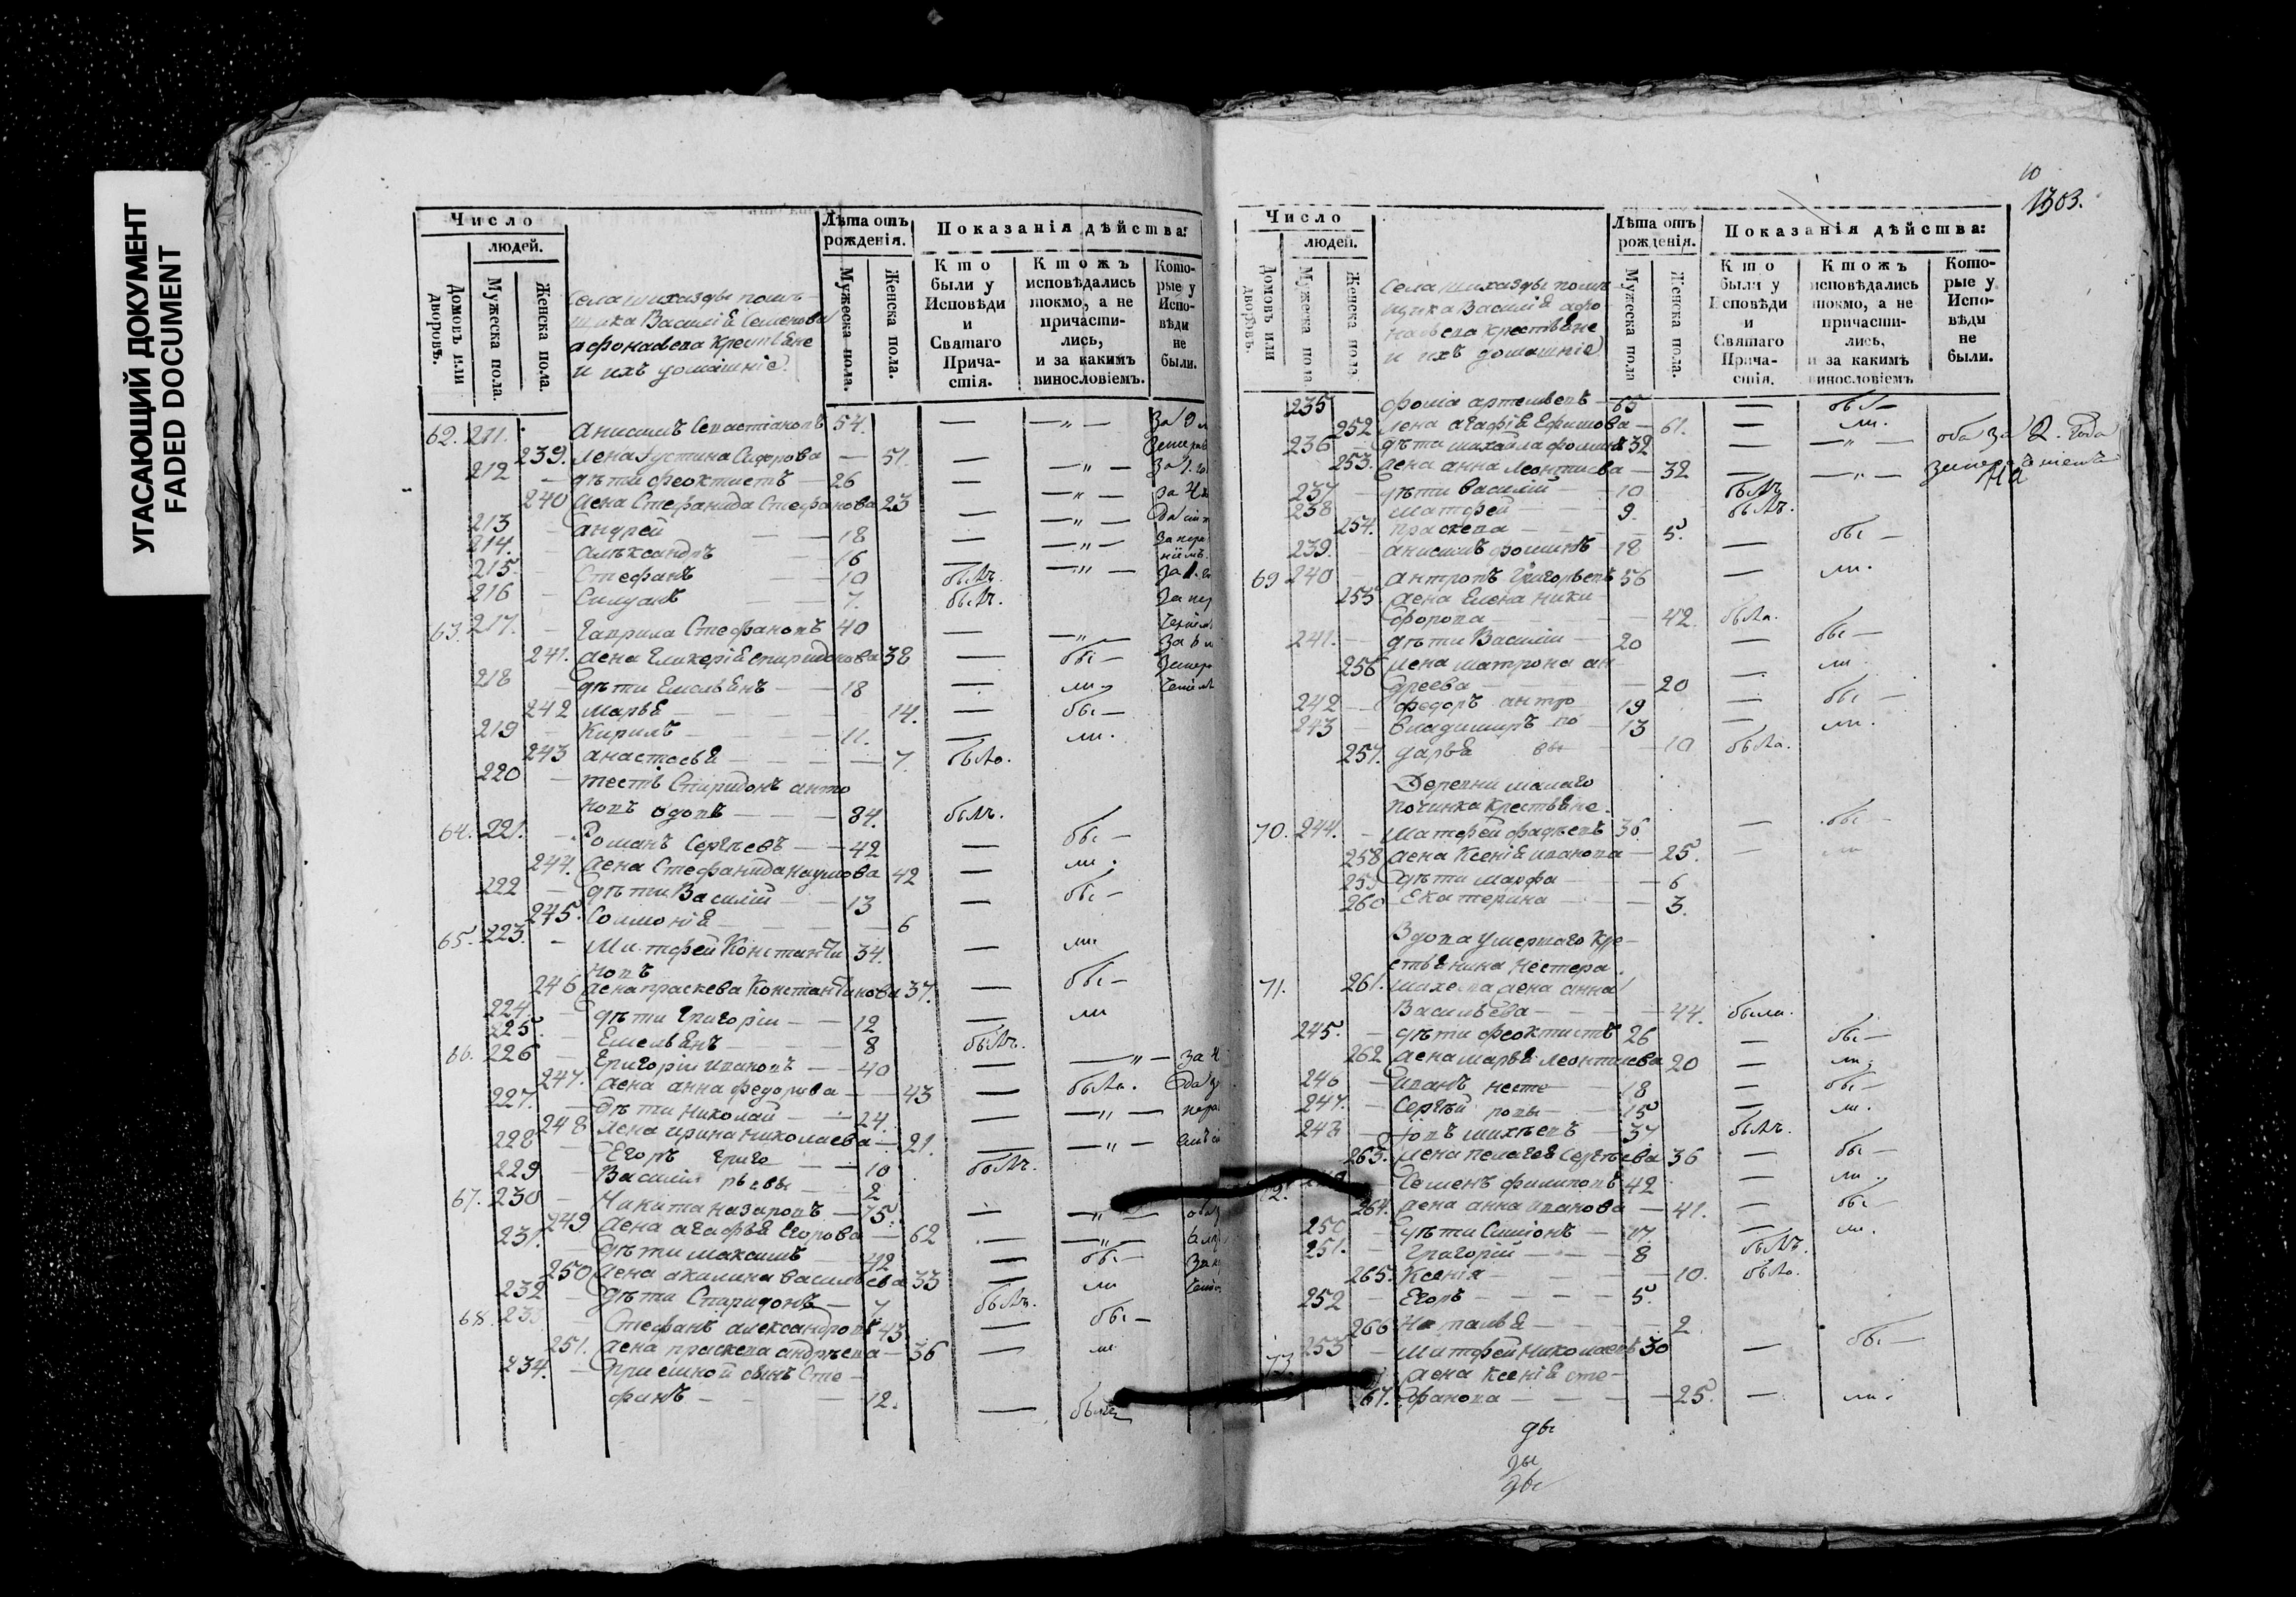 УГАСАЮЩИЙ ДОКУМЕНТ
FADED DOCUMENT
Число
людей.
Домовъ или дворовъ.
Мужеска пола.
Женска пола.
Села Шихазды помѣ-
щика Василія Семенова
Афонасьева крестьяне
и ихъ домашніе
Лѣта отъ рожденія.
Мужеска пола.
Женска пола.
Показанія дѣйства:
Кто были у Исповѣди и Святаго Прича-стія.
Ктожъ исповѣдались токмо, а не причасти-лись, и за какимъ винословіемъ.
Кото-рые у Испо-вѣди не были.
62. 211. Анисимъ Севастіановъ 54. — —„—
239. жена Іустина Сидорова — 51. — —„—
212 — дѣти Феоктистъ — 26 —
240 жена Стефанида Стефанова 23 —„—
213 — Андрей — — 18 — —„—
214. — Александръ — 16 — —„—
215. — Стефанъ — — 10 былъ.
216 — Силуанъ — — 7. былъ.
63. 217. — Гаврила Стефановъ 40 — —„—
241. жена Гликерія Спиридонова 38 — бы —
218 — дѣти Емельянъ — — 18 — ли
242 Марья — — — 14. — бы —
219 — Кирилъ — — — 11. — ли.
243 Анастасья — — — 7. была.
220 — тесть Спиридонъ Анто
новъ вдовъ — — — 84. былъ.
64. 221. — Романъ Сергѣевъ — — 42 — бы —
244. жена Стефанида Наумова 42 — ли.
222 — дѣти Василій — — 13 — бы —
245. Соломонія — — — 6
65. 223. — Матфей Константи 34. — ли
новъ
246 жена Праскева Константинова 37. — бы —
224. — дѣти Григорій — — 12 — ли
225. — Емельянъ — — — 8 былъ.
66. 226 — Григорій Ивановъ — — 40 — —„—
247. жена Анна Федорова — — 43 — была.
227. — дѣти Николай — — 24. — —„—
248 жена Ирина Николаева — 21. — —„—
228 — Егоръ Григо — — 10 былъ.
229 — Василій рьевы — — 2
67. 230 — Никита Назаровъ — 75. — —„—
249 жена Агафья Егорова — 62 — —„—
231. — дѣти Максимъ — 42 — бы —
250 жена Акилина Васильева 33 — ли
232 — дѣти Спиридонъ — 7 былъ.
68. 233 — Стефанъ Александровъ 43 — бы —
251. жена Праскева Андрѣева — 36 — ли
234. — приемной сынъ Сте-
фанъ — — — 12. —
10
1303.
Число
людей.
Домовъ или дворовъ.
Мужеска пола
Женска пола.
Села Шихазды помѣ-
щика Василія Афо-
насьева крестьяне
и ихъ домашніе
Лѣта отъ рожденія.
Мужеска пола
Женска пола.
Показанія дѣйства:
Кто были у Исповѣди и Святаго Прича-стія.
Ктожъ исповѣдались токмо, а не причасти-лись, и за какимъ винословіемъ
Кото-рые у Испо-вѣди не были.
235 Фома Артемьевъ — 65 — бы —
252 жена Агафія Ефимова — 61. — ли.
236 — дѣти Михайла Фоминъ 32 — —„— оба за 2. года
253. жена Анна Леонтиева — 32 — —„—
237 — дѣти Василій — — 10 былъ
238 — Матфей — — 9. былъ.
254. Праскева — — — 5.
239. — Анисимъ Фоминъ — 18 — бы —
69 240 — Антропъ Григорьевъ 56 — ли.
255 жена Елена Ники-
форова — — — 42. была.
241. — дѣти Василій — 20 — бы —
256 жена Матрона Ан-
дреева — — — 20 — ли.
242 — Федоръ Антро — 19 — бы —
243 — Владимиръ по — 13 — ли.
257. Дарья вы — — 10 была.
Деревни Малаго
Починка крестьяне.
70. 244. — Матфей Фадѣевъ 36 — бы —
258 жена Ксенія Иванова — 25. — ли
259 дѣти Марфа — — 6
260 Екатерина — — 3.
Вдова умершаго кре-
стьянина Нестера
71. 261. Михеева жена Анна
Васильева — — — 44. была.
245. — дѣти Феоктистъ 26 — бы —
262 жена Марья Леонтиева 20 — ли.
246 — Иванъ Несте — 18 — бы —
247. — Сергѣй ровы — 15 — ли.
248 — Іовъ Михѣевъ — 37 былъ.
263. жена Пелагея Сергѣева 36 — бы —
72. — Семенъ Филиповъ 42 — ли.
264. жена Анна Иванова — 41. — бы —
250 — дѣти Симіонъ — 17. — ли.
251. — Григорій — — 8 былъ.
265. Ксенія — — — 10. была.
252 — Егоръ — — — 5.
266 Наталья — — — 2
73. 253 — Матфей Николаевъ 30 — бы —
жена Ксенія Сте-
267. фанова — — — 25. — ли.